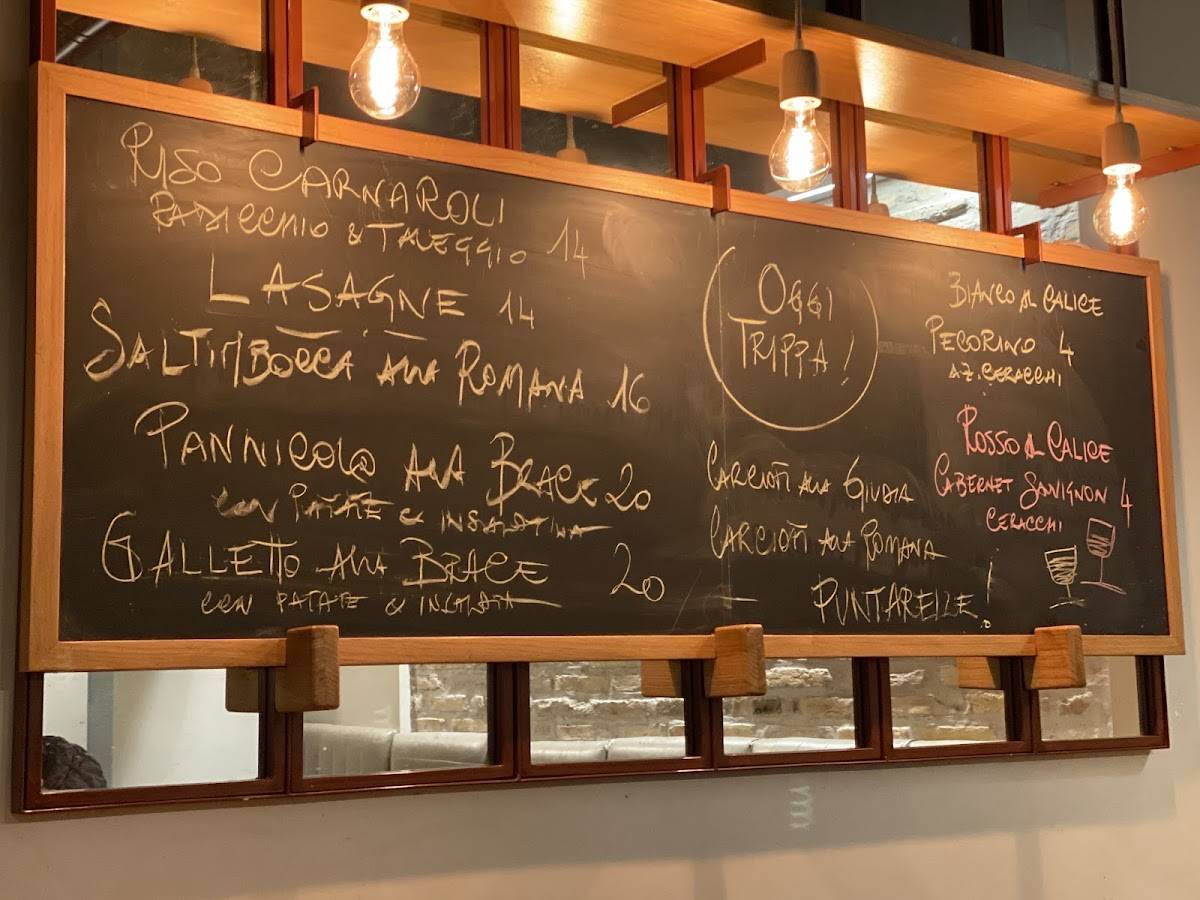 RISO CARNAROLI
RADICCHIO & TALEGGIO 14
LASAGNE 14
SALTIMBOCCA ALLA ROMANA 16
PANNICOLO ALLA BRACE 20
CON PATATE & INSALATINA
GALLETTO ALLA BRACE 20
CON PATATE & INSALATA
OGGI
TRIPPA!
CARCIOFI ALLA GIUDIA
CARCIOFI ALLA ROMANA
PUNTARELLE!
BIANCO AL CALICE
PECORINO 4
AZ. CERACCHI
ROSSO AL CALICE
CABERNET SAUVIGNON 4
CERACCHI